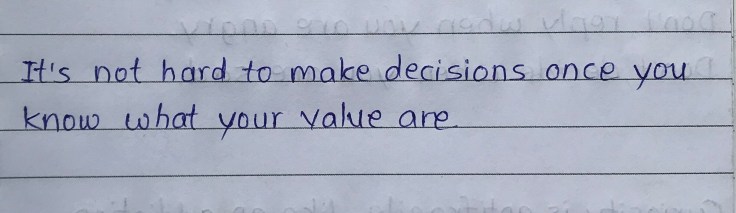 It's not hard to make decisions once you
know what your value are